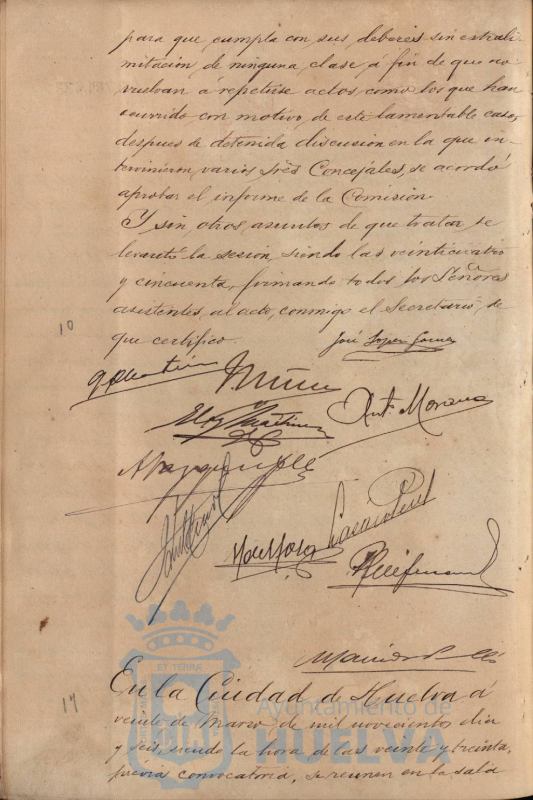 para que cumpla con sus deberes sin extrali-
mitación de ninguna clase á fin de que no
vuelvan á repetirse actos como los que han
ocurrido con motivo de este lamentable caso,
despues de detenida discusion en la que in-
tervinieron varios Sres Concejales, se acordó
aprobar el informe de la Comisión.
Y sin otros asuntos de que tratar se
levantó la sesion siendo las veinticuatro
y cincuenta, firmando todos los Señores
asistentes al acto, conmigo el Secretario, de
que certifico.
José Lopez Gomez
10
Eloy Martinez
Ant. Moreno
17
En la Ciudad de Huelva á
veinte de Marzo de mil novecientos diez
y seis siendo la hora de las veinte y treinta,
prévia convocatoria, se reunen en la sala
ET TERRÆ
Ayuntamiento de
HUELVA